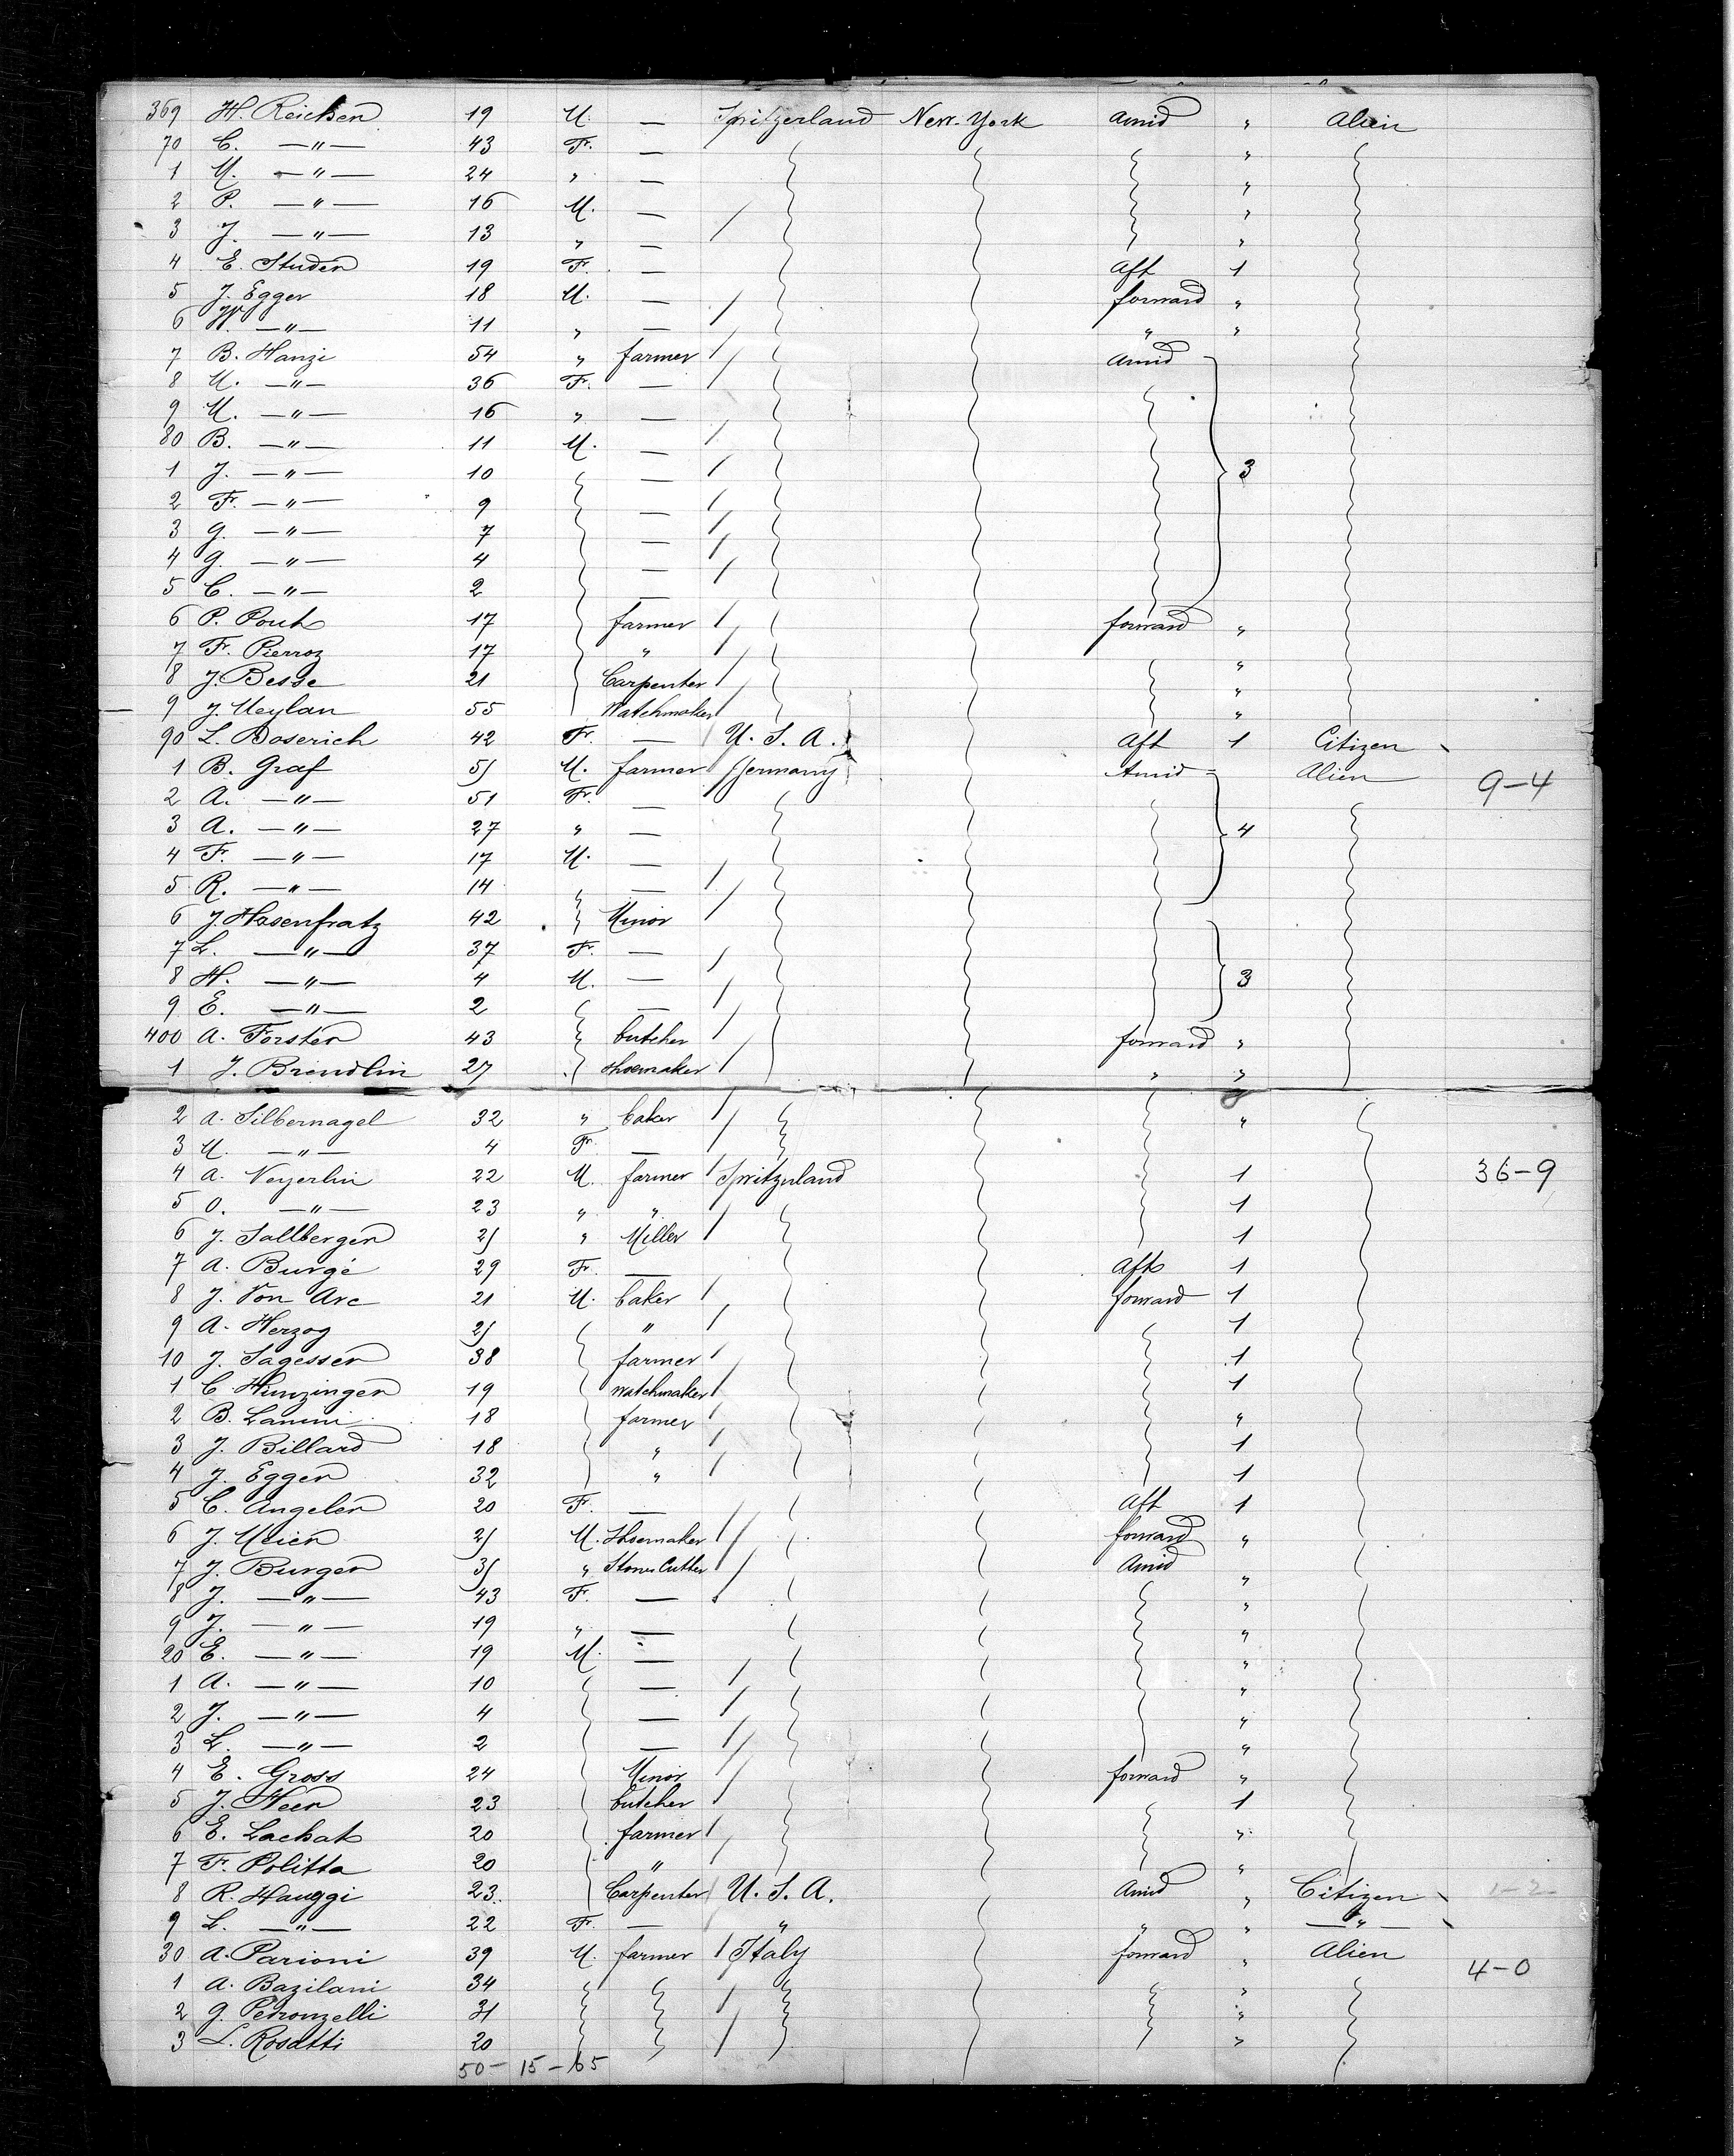 369 H. Reichen 19 M. — Switzerland New-York Amid " Alien
70 C. —"— 43 Fr. — "
1 M. —"— 24 " — "
2 P. —"— 16 M. — "
3 J. —"— 13 " — "
4 E. Studer 19 Fr. — Aft 1
5 J. Egger 18 M. — forward "
6 W. —"— 11 " — " "
7 B. Hanzi 54 " farmer Amid
8 M. —"— 36 Fr. —
9 M. —"— 16 " —
80 B. —"— 11 M. —
1 J. —"— 10 — 3
2 Fr. —"— 9 —
3 G. —"— 7 —
4 G. —"— 4 —
5 C. —"— 2 —
6 P. Pout 17 farmer forward "
7 Fr. Pierroz 17 " "
8 J. Besse 21 Carpenter "
9 J. Meylan 55 Watchmaker "
90 L. Boserich 42 Fr. — U. S. A. Aft 1 Citizen
1 B. Graf 51 M. farmer Germany Amid Alien 9-4
2 A. —"— 51 Fr. —
3 A. —"— 27 " — 4
4 F. —"— 17 M. —
5 R. —"— 14 —
6 J. Hasenfratz 42 Minor
7 L. —"— 37 Fr. —
8 H. —"— 4 M. — 3
9 E. —"— 2 —
400 A. Forster 43 butcher forward "
1 J. Brendlin 27 shoemaker " "
2 A. Silbernagel 32 " baker "
3 M. —"— 4 Fr. —
4 A. Veyerlin 22 M. farmer Switzerland 1 36-9
5 O. —"— 23 " " 1
6 J. Sallberger 25 " Miller 1
7 A. Burgé 29 Fr. — Aft 1
8 J. Von Arc 21 M. baker forward 1
9 A. Herzog 25 " 1
10 J. Sagesser 38 farmer 1
1 C. Hunzinger 19 watchmaker 1
2 B. Lanini 18 farmer "
3 J. Billard 18 " 1
4 J. Egger 32 " 1
5 C. Angeler 20 Fr. — Aft 1
6 J. Meier 25 M. Shoemaker forward "
7 J. Burger 35 " Stone Cutter Amid "
8 J. —"— 43 Fr. — "
9 J. —"— 19 " — "
20 E. —"— 19 M. — "
1 A. —"— 10 — "
2 J. —"— 4 — "
3 L. —"— 2 — "
4 E. Gross 24 Minor forward "
5 J. Heer 23 butcher 1
6 E. Lachat 20 farmer "
7 F. Politta 20 " "
8 R. Hauggi 23 Carpenter U. S. A. Amid " Citizen 1-2
9 L. —"— 22 Fr. — " " " —"—
30 A. Parioni 39 M. farmer Italy forward " Alien 4-0
1 A. Bazilani 34 "
2 G. Petronzelli 31 "
3 L. Rosatti 20 "
50-15-65